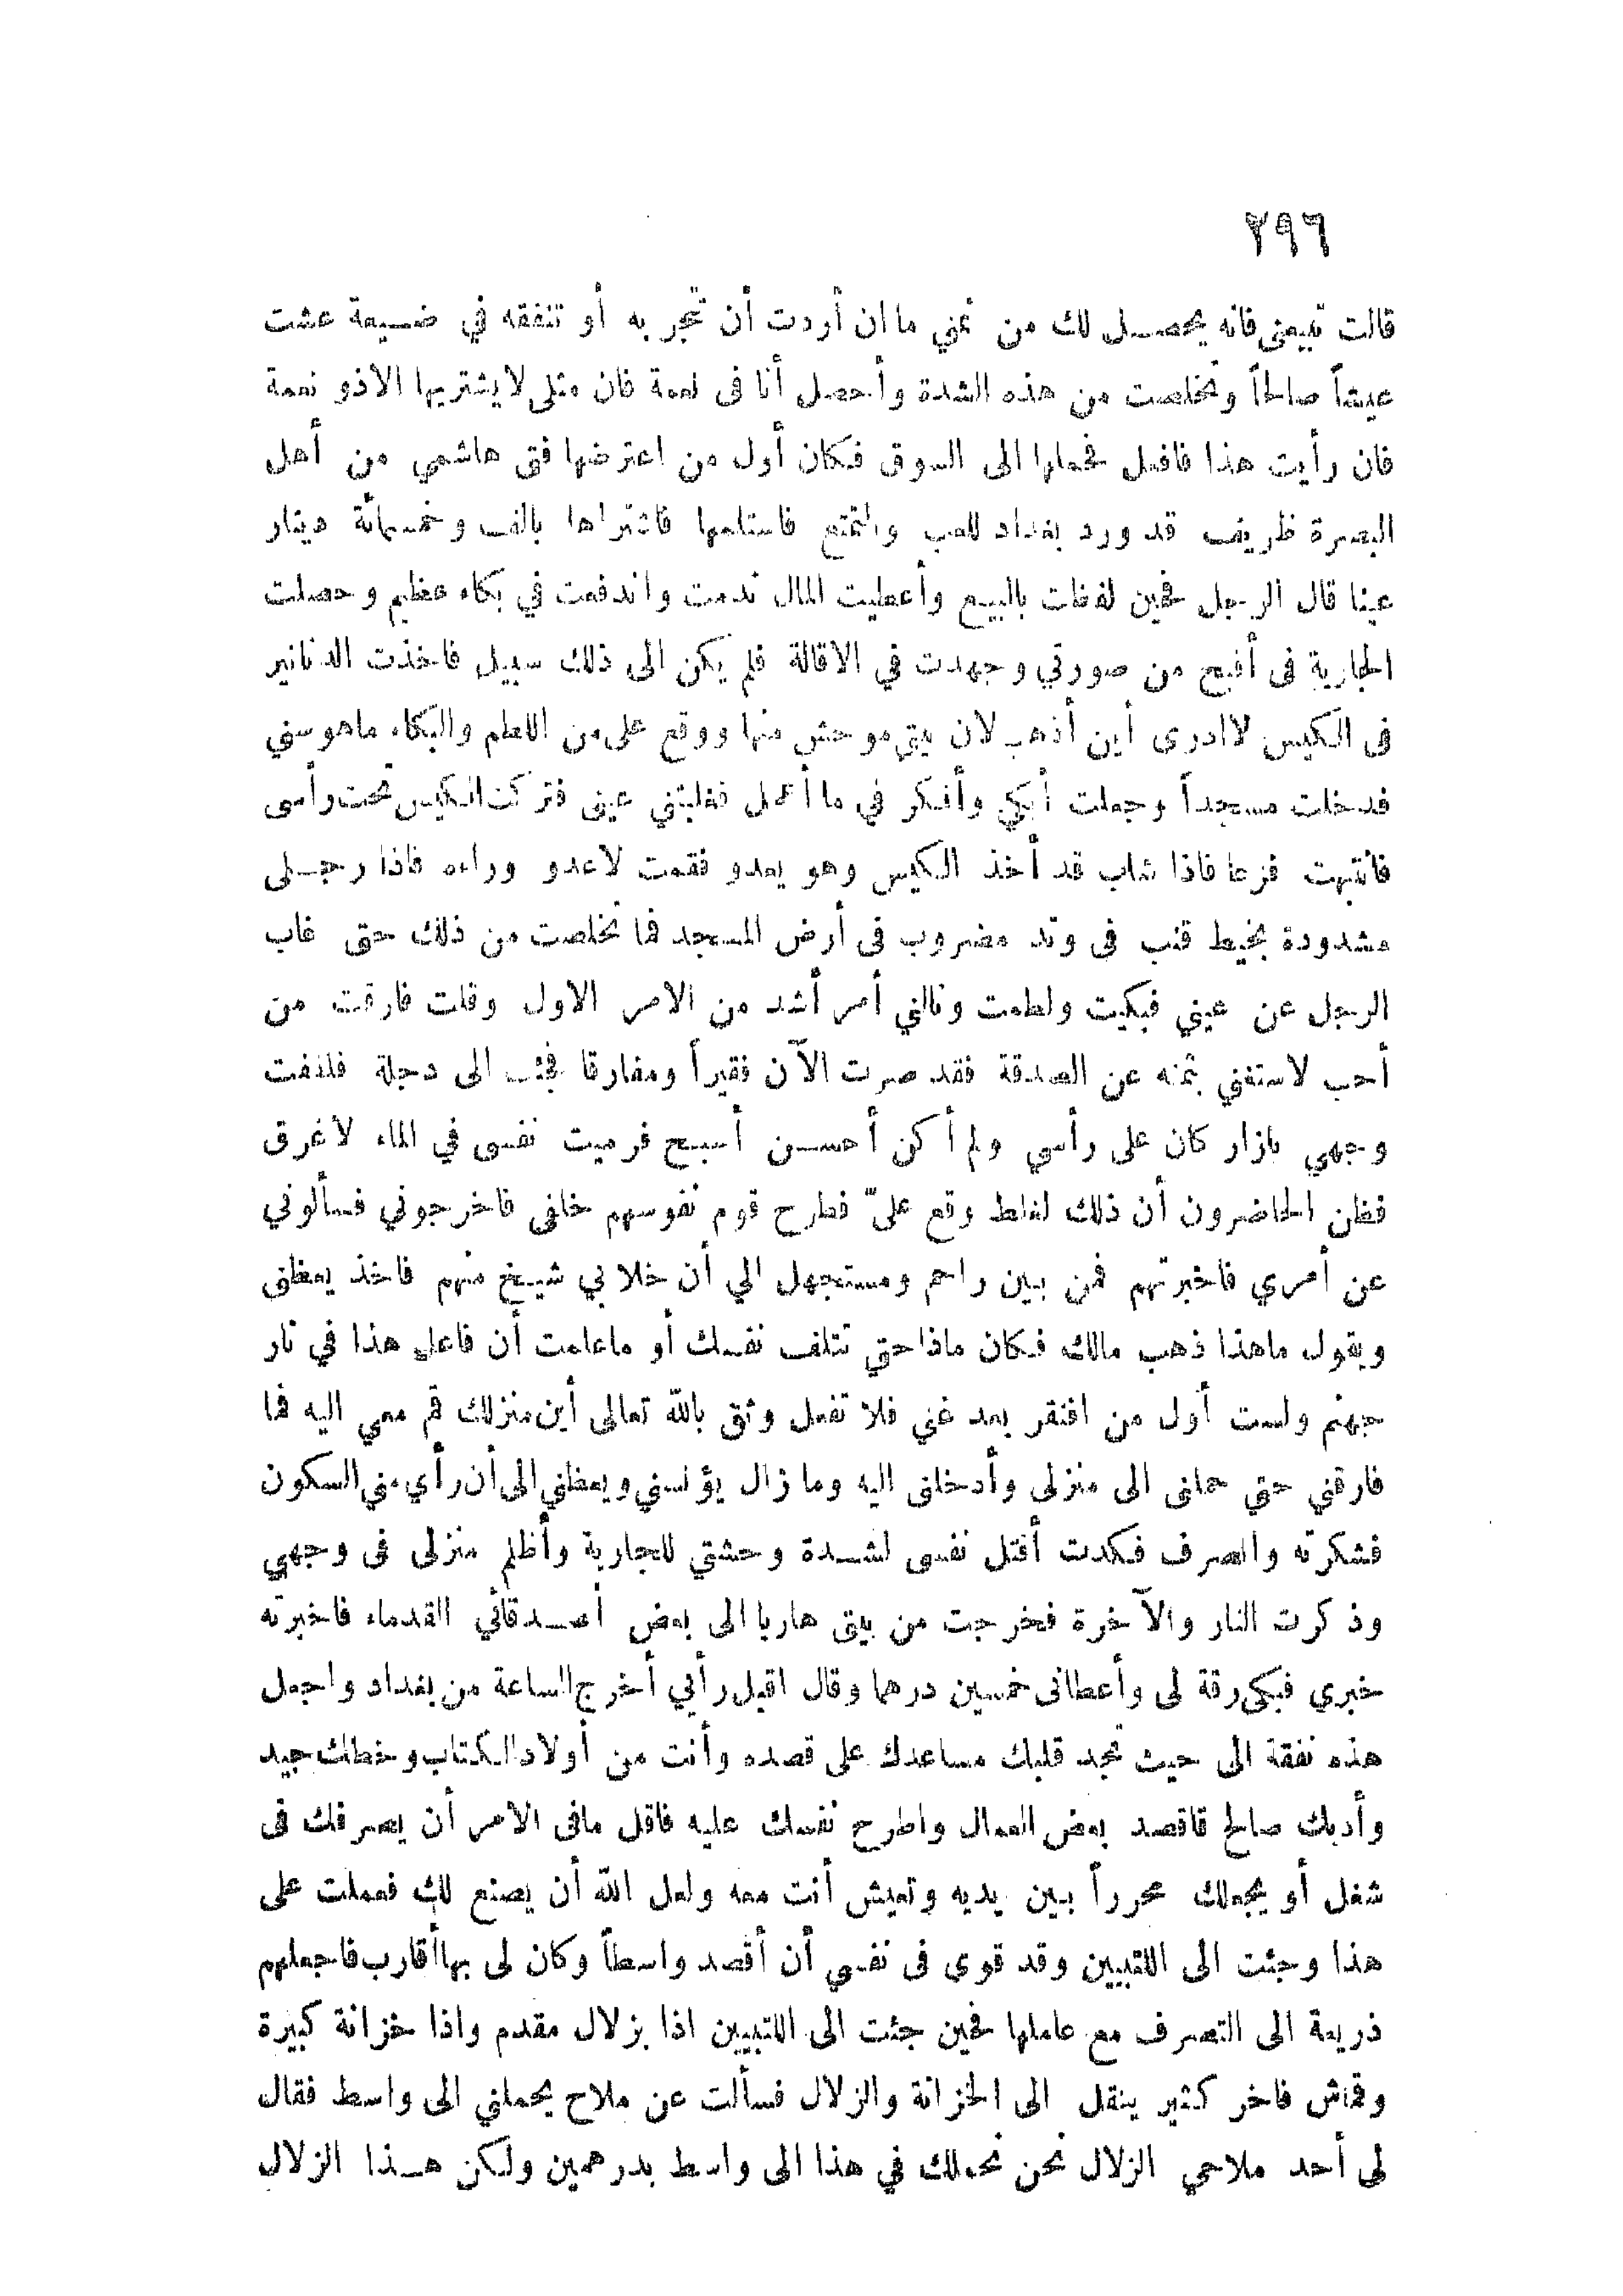 ٢٩٦
قالت تبيعني فانه يحصل لك من ثمني ما ان أردت أن تتجر به أو تنفقه في ضيعة عشت
عيشاً صالحاً وتخلصت من هذه الشدة وأحصل أنا فى نعمة فان مثلى لايشتريها الاذو نعمة
فان رأيت هذا فافعل فحملها الى السوق فكان أول من اعترضها فتى هاشمي من أهل
البصرة ظريف قد ورد بغداد للعب والتمتع فاستامها فاشتراها بالف وخمسمائة دينار
عينا قال الرجل فحين لفظت بالبيع وأعطيت المال ندمت واندفعت في بكاء عظيم وحصلت
الجارية فى أقبح من صورتي وجهدت في الاقالة فلم يكن الى ذلك سبيل فاخذت الدنانير
فى الكيس لاادرى أين أذهب لان بيتى موحش منها ووقع على من اللطم والبكاء ماهوسني
فدخلت مسجداً وجعلت أبكي وأفكر في ما أعمل فغلبتني عينى فتركت الكيس تحت رأسى
فانتبهت فزعا فاذا شاب قد أخذ الكيس وهو يعدو فقمت لاعدو وراءه فاذا رجلى
مشدودة بخيط قنب فى وتد مضروب فى أرض المسجد فما تخلصت من ذلك حتى غاب
الرجل عن عيني فبكيت ولطمت ونالني أمر أشد من الامر الاول وقلت فارقت من
أحب لاستغني بثمنه عن الصدقة فقد صرت الآن فقيراً ومفارقا فجئت الى دجلة فلففت
وجهي بازار كان على رأسي ولم أكن أحسن أسبح فرميت نفسى في الماء لاغرق
فظن الحاضرون أن ذلك لغلط وقع علىّ فطرح قوم نفوسهم خلفى فاخرجوني فسألوني
عن أمري فاخبرتهم فمن بين راحم ومستجهل الي أن خلا بي شيخ منهم فاخذ يعظنى
ويقول ماهذا ذهب مالك فكان ماذا حتي تتلف نفسك أو ماعلمت أن فاعل هذا في نار
جهنم ولست أول من افتقر بعد غني فلا تفعل وثق بالله تعالى أين منزلك قم معي اليه فما
فارقني حتي حملنى الى منزلى وأدخلنى اليه وما زال يؤنسني ويعظني الى أن رأي مني السكون
فشكرته وانصرف فكدت أقتل نفسى لشدة وحشتي للجارية وأظلم منزلى فى وجهي
وذكرت النار والآخرة فخرجت من بيتى هاربا الى بعض أصدقائي القدماء فاخبرته
خبري فبكى رقة لى وأعطانى خمسين درهما وقال اقبل رأيي أخرج الساعة من بغداد واجعل
هذه نفقة الى حيث تجد قلبك مساعدك على قصده وأنت من أولاد الكتاب وخطك جيد
وأدبك صالح فاقصد بعض العمال واطرح نفسك عليه فاقل مافى الامر أن يصرفك فى
شغل أو يجعلك محرراً بين يديه وتعيش أنت معه ولعل الله أن يصنع لك فعملت على
هذا وجئت الى الكتبيين وقد قوى فى نفسي أن أقصد واسطاً وكان لى بها أقارب فاجعلهم
ذريعة الى التصرف مع عاملها فحين جئت الى الكتبيين اذا بزلال مقدم واذا خزانة كبيرة
وقماش فاخر كثير ينقل الى الخزانة والزلال فسألت عن ملاح يحملني الى واسط فقال
لى أحد ملاحي الزلال نحن نحملك في هذا الى واسط بدرهمين ولكن هذا الزلال